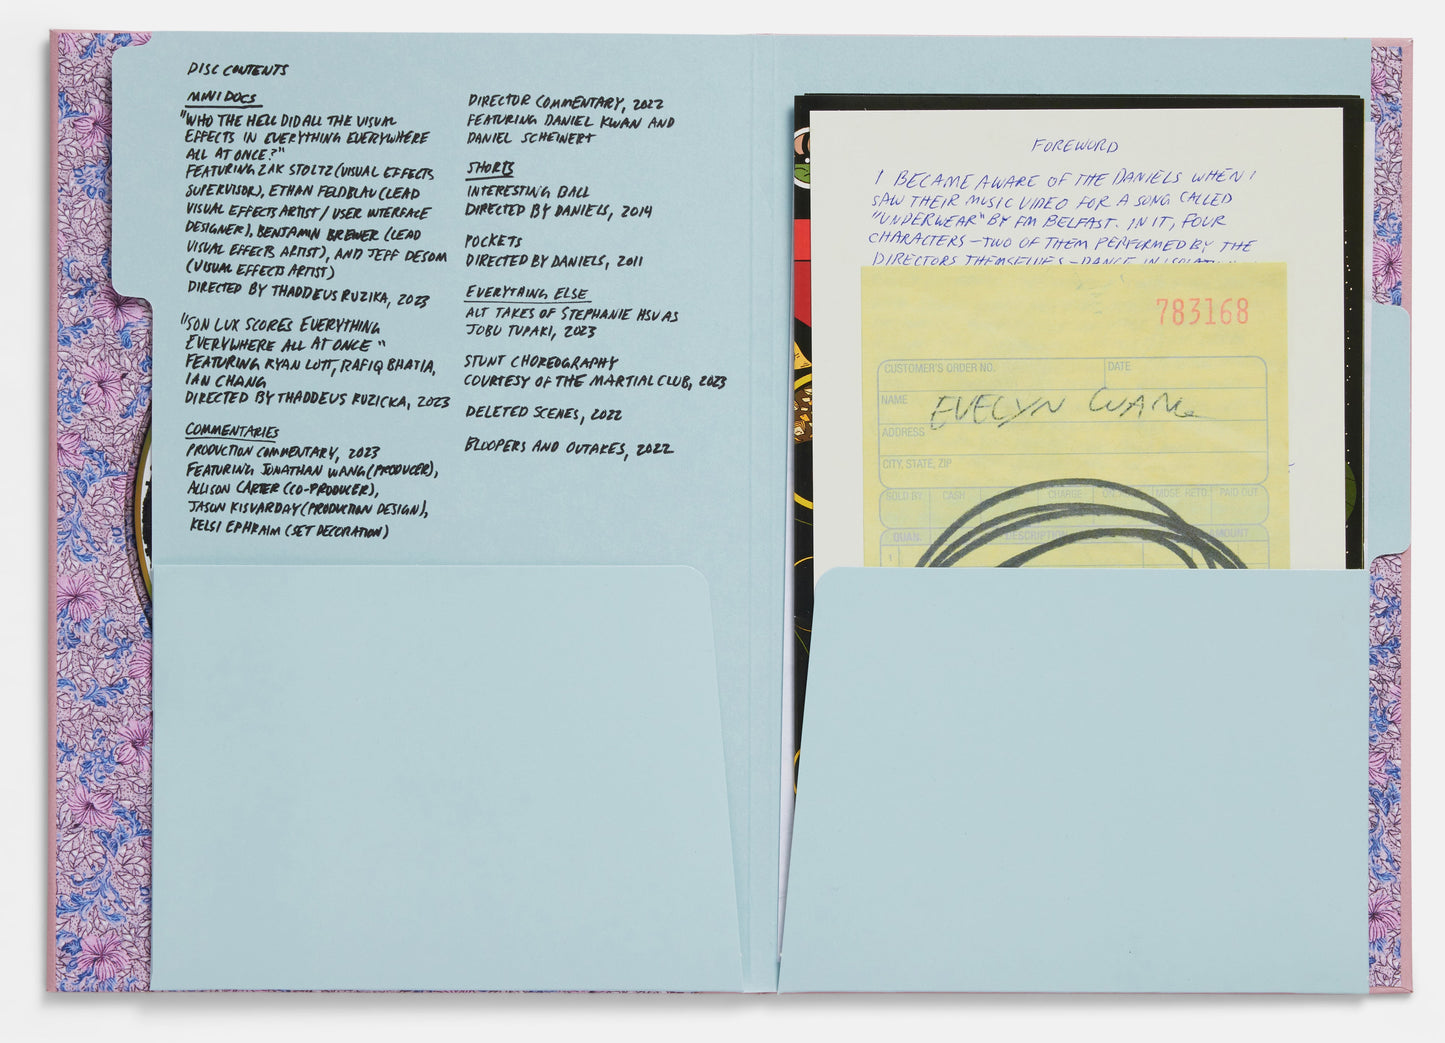 DISC CONTENTS
MINI DOCS
"WHO THE HELL DID ALL THE VISUAL
EFFECTS IN EVERYTHING EVERYWHERE
ALL AT ONCE?"
FEATURING ZAK STOLTZ (VISUAL EFFECTS
SUPERVISOR), ETHAN FELDBAU (LEAD
VISUAL EFFECTS ARTIST / USER INTERFACE
DESIGNER), BENJAMIN BREWER (LEAD
VISUAL EFFECTS ARTIST), AND JEFF DESOM
(VISUAL EFFECTS ARTIST)
DIRECTED BY THADDEUS RUZIKA, 2023
"SON LUX SCORES EVERYTHING
EVERYWHERE ALL AT ONCE"
FEATURING RYAN LOTT, RAFIQ BHATIA,
IAN CHANG
DIRECTED BY THADDEUS RUZICKA, 2023
COMMENTARIES
PRODUCTION COMMENTARY, 2023
FEATURING JONATHAN WANG (PRODUCER),
ALLISON CARTER (CO-PRODUCER),
JASON KISVARDAY (PRODUCTION DESIGN),
KELSI EPHRAIM (SET DECORATION)
DIRECTOR COMMENTARY, 2022
FEATURING DANIEL KWAN AND
DANIEL SCHEINERT
SHORTS
INTERESTING BALL
DIRECTED BY DANIELS, 2014
POCKETS
DIRECTED BY DANIELS, 2011
EVERYTHING ELSE
ALT TAKES OF STEPHANIE HSU AS
JOBU TUPAKI, 2023
STUNT CHOREOGRAPHY
COURTESY OF THE MARTIAL CLUB, 2023
DELETED SCENES, 2022
BLOOPERS AND OUTAKES, 2022
FOREWORD
I BECAME AWARE OF THE DANIELS WHEN I
SAW THEIR MUSIC VIDEO FOR A SONG CALLED
"UNDERWEAR" BY FM BELFAST. IN IT, FOUR
CHARACTERS – TWO OF THEM PERFORMED BY THE
DIRECTORS THEMSELVES – DANCE IN
783168
CUSTOMER'S ORDER NO. DATE
NAME EVELYN WANG
ADDRESS
CITY, STATE, ZIP
SOLD BY CASH CHARGE MDSE RETD. PAID OUT
QUAN. DESCRIPTION
1